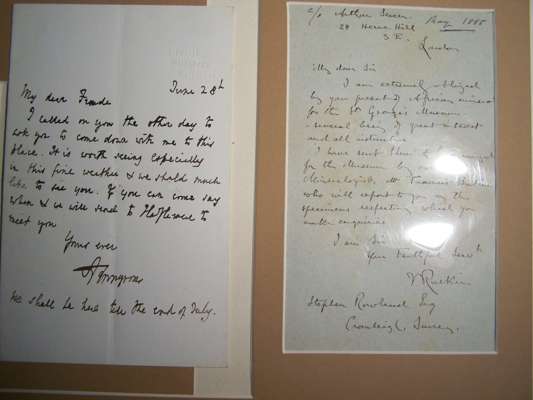 June 28th
My dear Froude
I called on you the other day to
ask you to come down with me to this
place. It is worth seeing especially
in this fine weather & we should much
like to see you. If you can come say
when & we will send to Haslemere to
meet you
Yours ever
We shall be here till the end of July.
c/o Arthur Severn May 1885
28 Herne Hill
S.E.
London
My dear Sir
I am extremely obliged
by your present of African minerals
for the St George's Museum
several being of great interest
and all
I have sent them to be
for the Museum by
Mineralogist, Mr Francis
who will report to you any
specimens respecting which you
I am Sir
Your faithful Serv
J Ruskin
Stephen Rowland Esq
Cranleigh, Surrey.